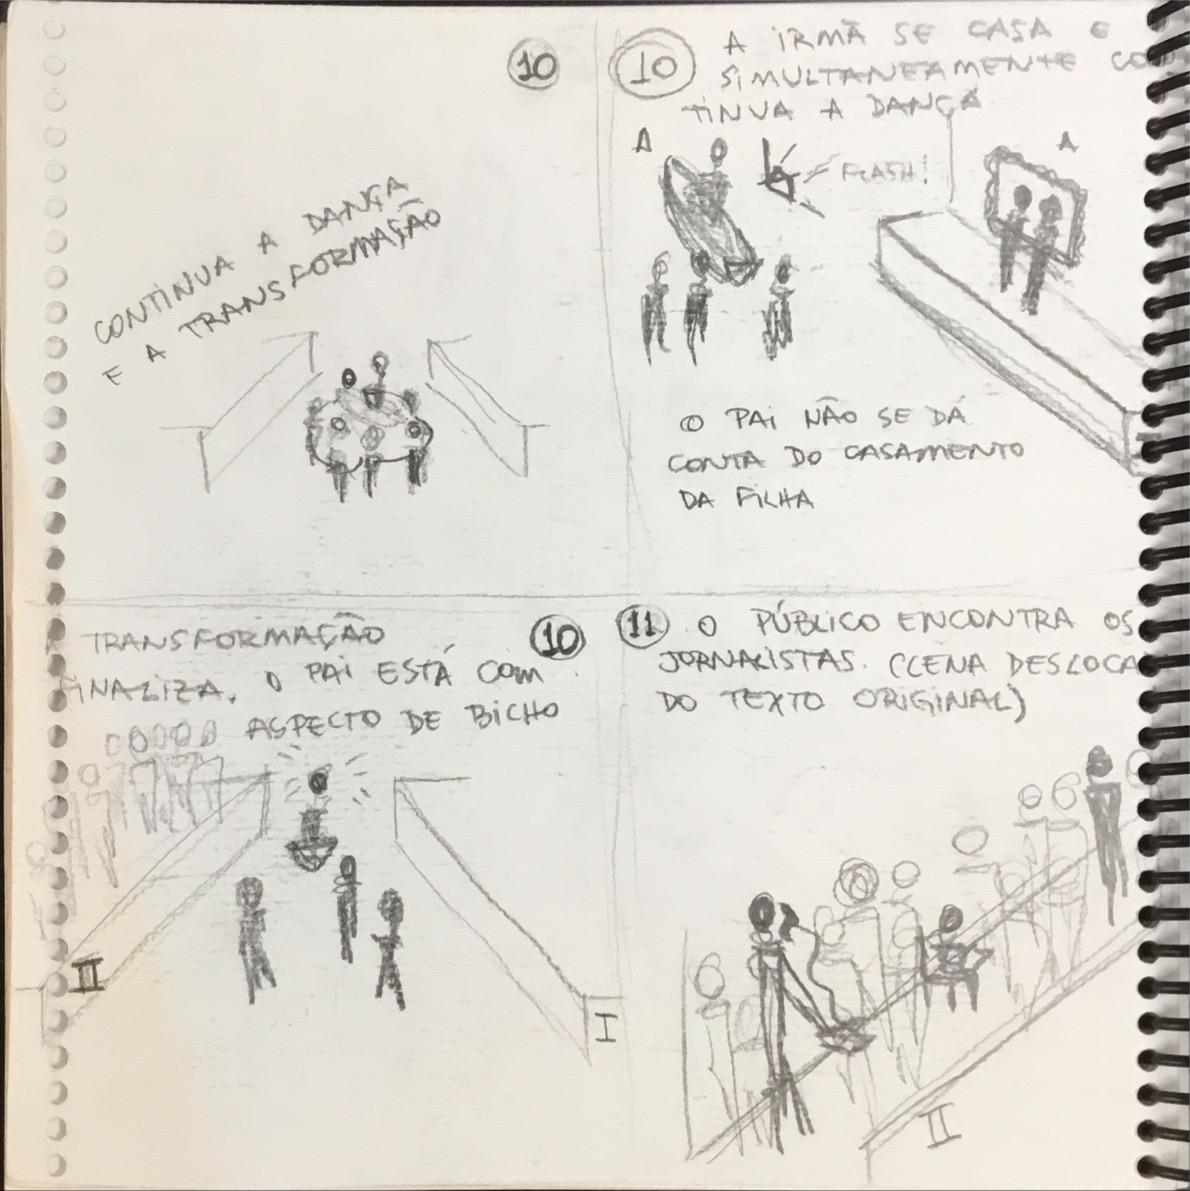 10
CONTINUA A DANÇA
E A TRANSFORMAÇÃO
10
A IRMÃ SE CASA E
SIMULTANEAMENTE CO
TINUA A DANÇA
A
FLASH!
A
O PAI NÃO SE DÁ
CONTA DO CASAMENTO
DA FILHA
TRANSFORMAÇÃO
10
INALIZA. O PAI ESTÁ COM
ASPECTO DE BICHO
II
I
11 O PÚBLICO ENCONTRA OS
JORNALISTAS. (CENA DESLOCA
DO TEXTO ORIGINAL)
II